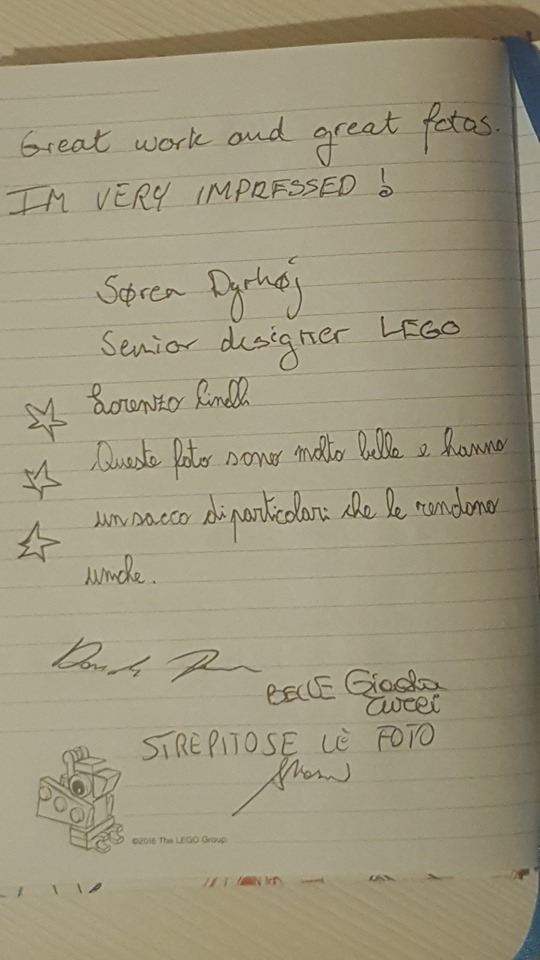 Great work and great fotos.
IM VERY IMPRESSED !
Søren Dyrhøj
Senior designer LEGO
Lorenzo
Queste foto sono molto belle e hanno
un sacco di particolari che le rendono
uniche.
BELLE Giada
Cucci
STREPITOSE LE FOTO
©2016 The LEGO Group